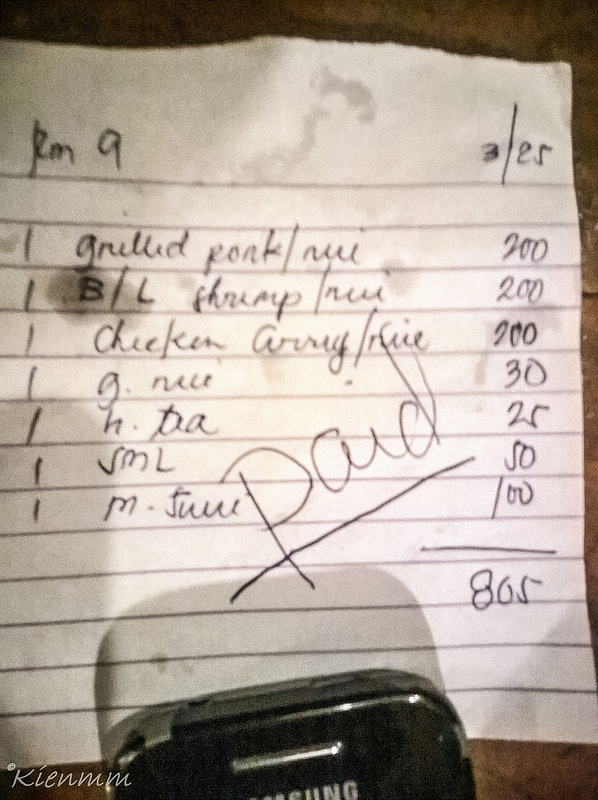 Rm 9 3/25
1 grilled pork/rice 200
1 B/L shrimp/rice 200
1 chicken curry/rice 200
1 g. rice 30
1 h. tea 25
1 SML 50
1 m. juice 100
Paid
805
SAMSUNG
©Kienmm